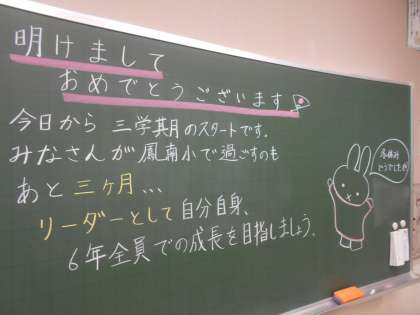 明けまして
おめでとうございます
今日から 三学期のスタートです.
みなさんが鳳南小で過ごすのも
あと 三ヶ月...
リーダーとして 自分自身、
6年全員での成長を目指しましょう.
冬休みは
どうでしたか